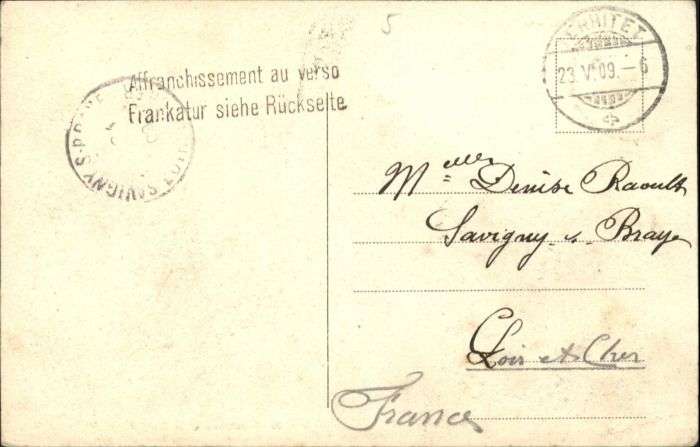 5
Affranchissement au verso
Frankatur siehe Rückseite
TERRITET
23. V. 09. – 6
SAVIGNY-S-BRAYE
Melle Denise Raoult
Savigny s. Braye
Loir et Cher
France